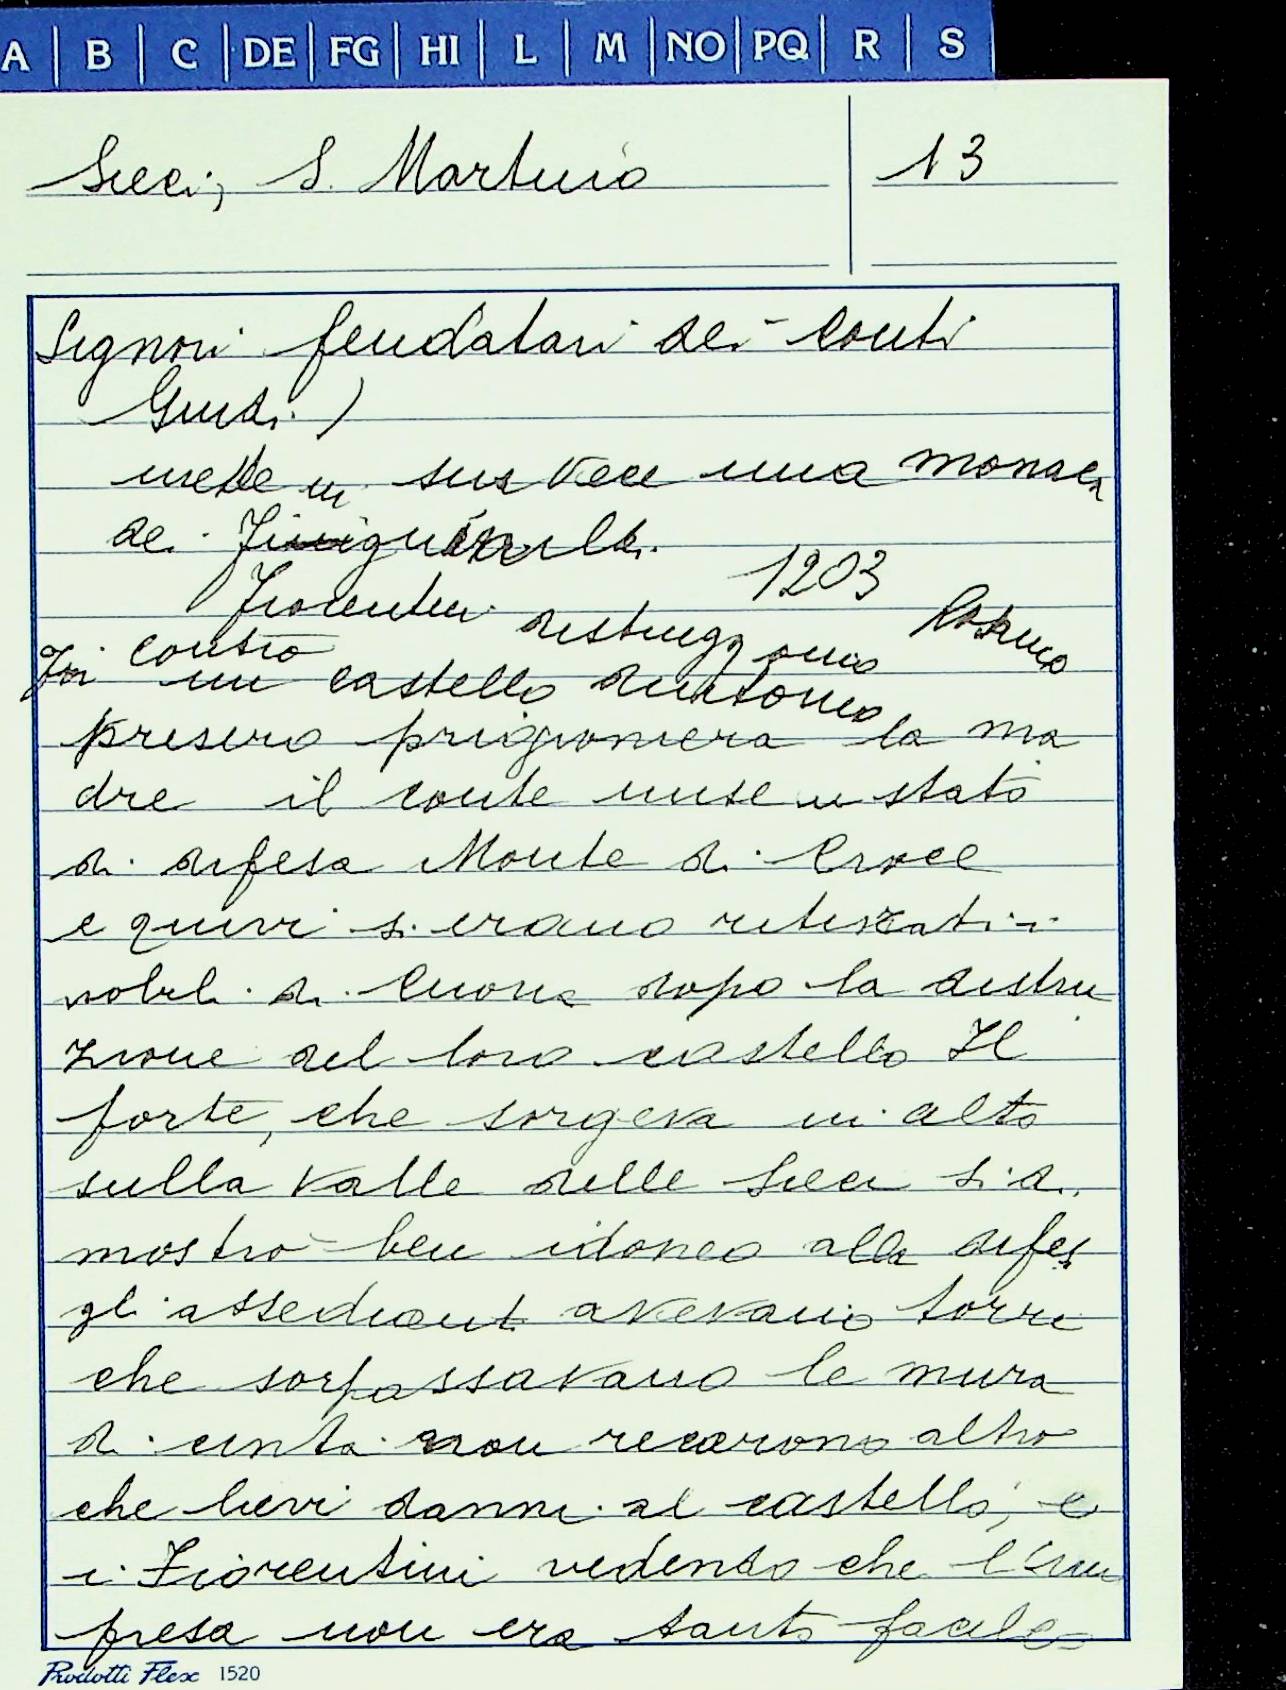 A | B | C | DE | FG | HI | L | M | NO | PQ | R | S
Sieci, S. Martino
13
Signori feudatari dei Conti
Guidi.)
mette in sua vece una monaca
di
1203
Fiorentini distruggono Rosano
Fu contro
un castello
presero prigioniera la ma
dre il conte mise in stato
di difesa Monte di Croce
e quivi si erano ritirati i
nobili di Cuona dopo la distru
zione del loro castello Il
forte, che sorgeva in alto
sulla valle delle Sieci si di
mostrò ben idoneo alla difesa
gli assedianti avevano torri
che sorpassavano le mura
di cinta non recarono altro
che lievi danni al castello, e
i Fiorentini vedendo che l'im
presa non era tanto facile
Prodotti Flex 1520